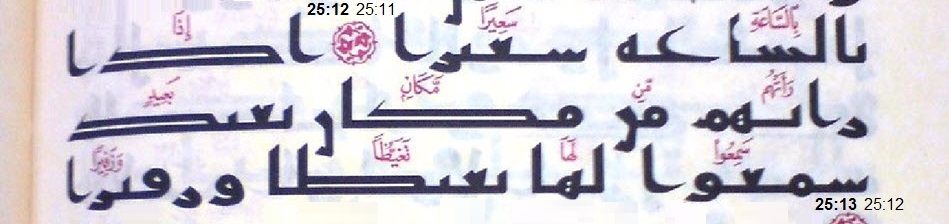 25:12 25:11
بِالسَّاعَةِ سَعِيرًا إِذَا
بالساعه سعيرا ادا
رَأَتْهُم مِّن مَّكَانٍ بَعِيدٍ
راتهم من مكان بعيد
سَمِعُوا لَهَا تَغَيُّظًا وَزَفِيرًا
سمعوا لها تغيظا وزفيرا
25:13 25:12